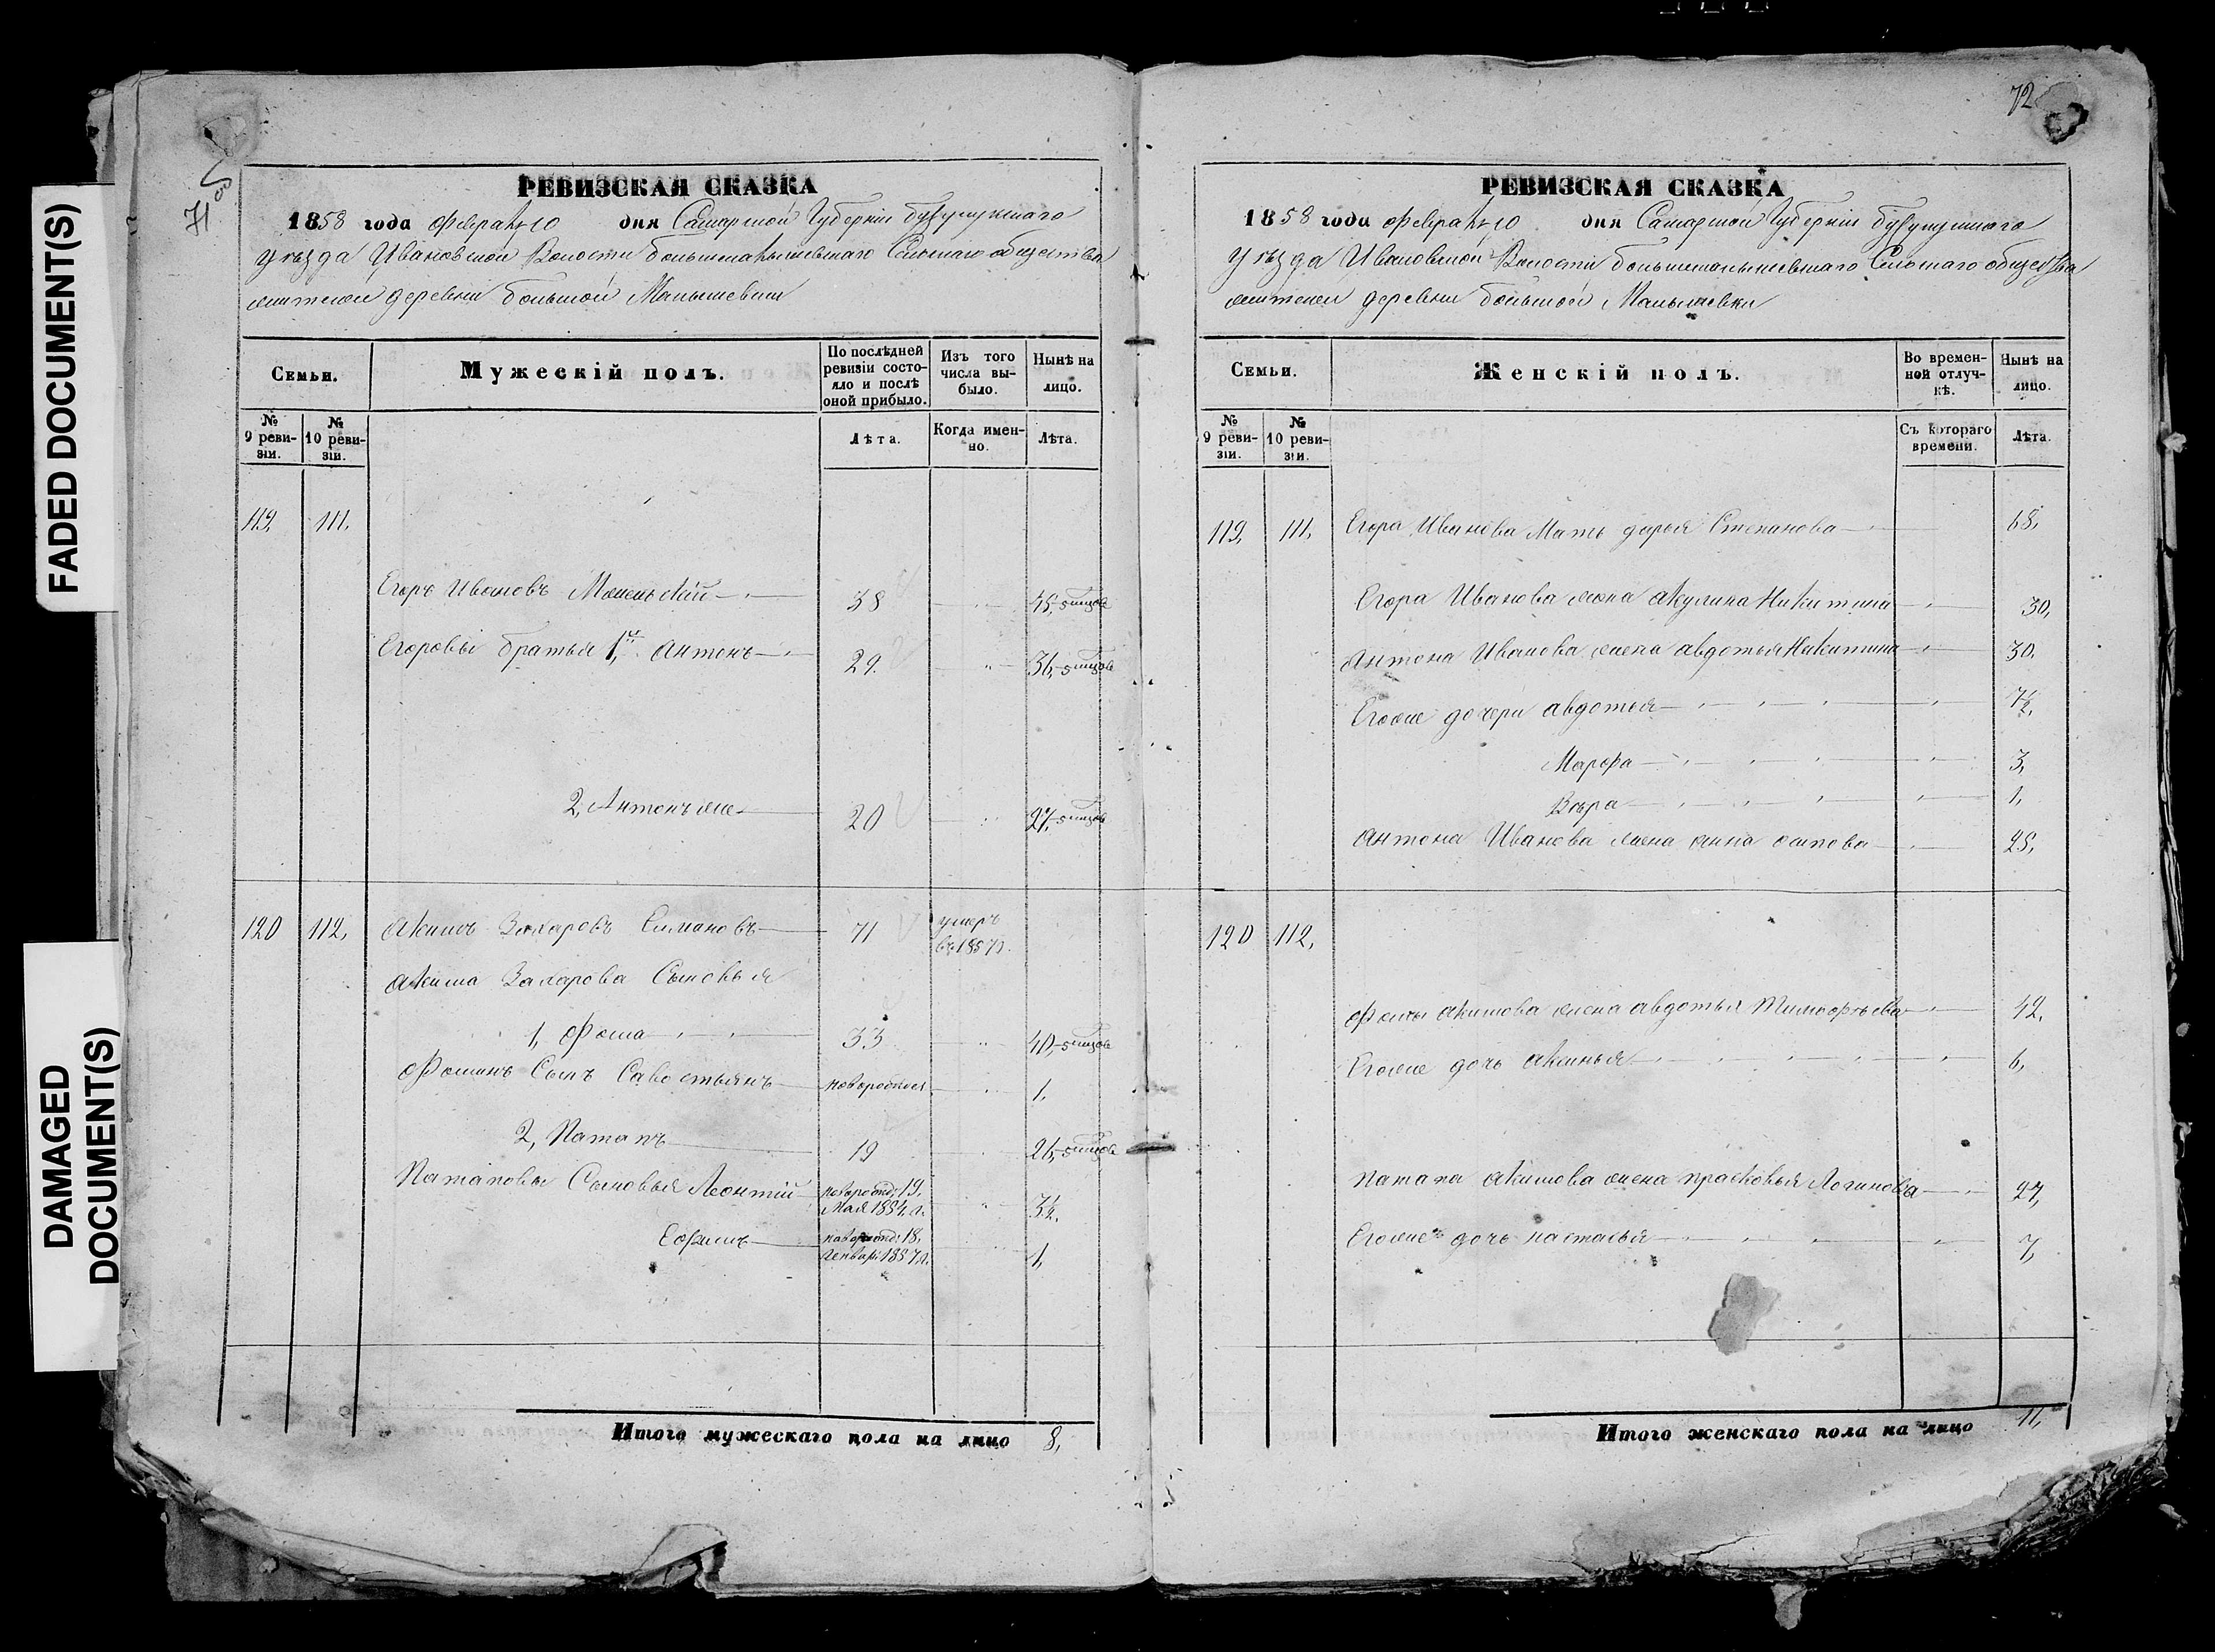 FADED DOCUMENT(S)
DAMAGED
DOCUMENT(S)
71
РЕВИЗСКАЯ СКАЗКА
1858 года февраля 10 дня Самарской Губернии бузулукскаго
уѣзда Ивановской Волости большемалышевскаго Сельскаго общества
жителей деревни большой Малышевки
Семьи.
Мужескій полъ.
По послѣдней ревизіи состояло и послѣ оной прибыло.
Изъ того числа выбыло.
Нынѣ на лицо.
№ 9 ревизіи.
№ 10 ревизіи.
Лѣта.
Когда именно.
Лѣта.
119. 111.
Егоръ Ивановъ 38 45,
Егоровы братья 1й Антонъ 29. 36,
2, Антонъ же 20 27,
120 112, Акимъ Захаровъ 71 умеръ въ 1857г.
Акима Захарова Сыновья
1, Фома 33 40,
Фоминъ Сынъ Савостьянъ новорожден. 1,
2, Патапъ 19 26,
Патаповы Сыновья Леонтій новорожд: 19, мая 1854. г. 3½,
Ефимъ новорожд: 18, генваря 1857 г. 1,
Итого мужескаго пола на лицо 8,
72
РЕВИЗСКАЯ СКАЗКА
1858 года февраля 10 дня Самарской Губернии бузулукскаго
уѣзда Ивановской Волости большемалышевскаго Сельскаго общества
жителей деревни большой Малышевки
Семьи.
Женскій полъ.
Во временной отлучкѣ.
Нынѣ на лицо.
№ 9 ревизіи.
№ 10 ревизіи.
Съ котораго времени.
Лѣта.
119, 111, Егора Иванова Мать дарья Степанова 68,
Егора Иванова жена акулина Никитина 30,
Антона Иванова жена авдотья Никитина 30.
Егоже дочери авдотья 7½,
Марфа 3,
Вѣра 1,
Антона Иванова жена анна осипова 25,
120 112,
Фомы акимова жена авдотья Тимофѣева 42,
Егоже дочь аксинья 6,
Патапа акимова жена прасковья Логинова 27,
Егоже дочь настасья 7,
Итого женскаго пола на лицо 11,